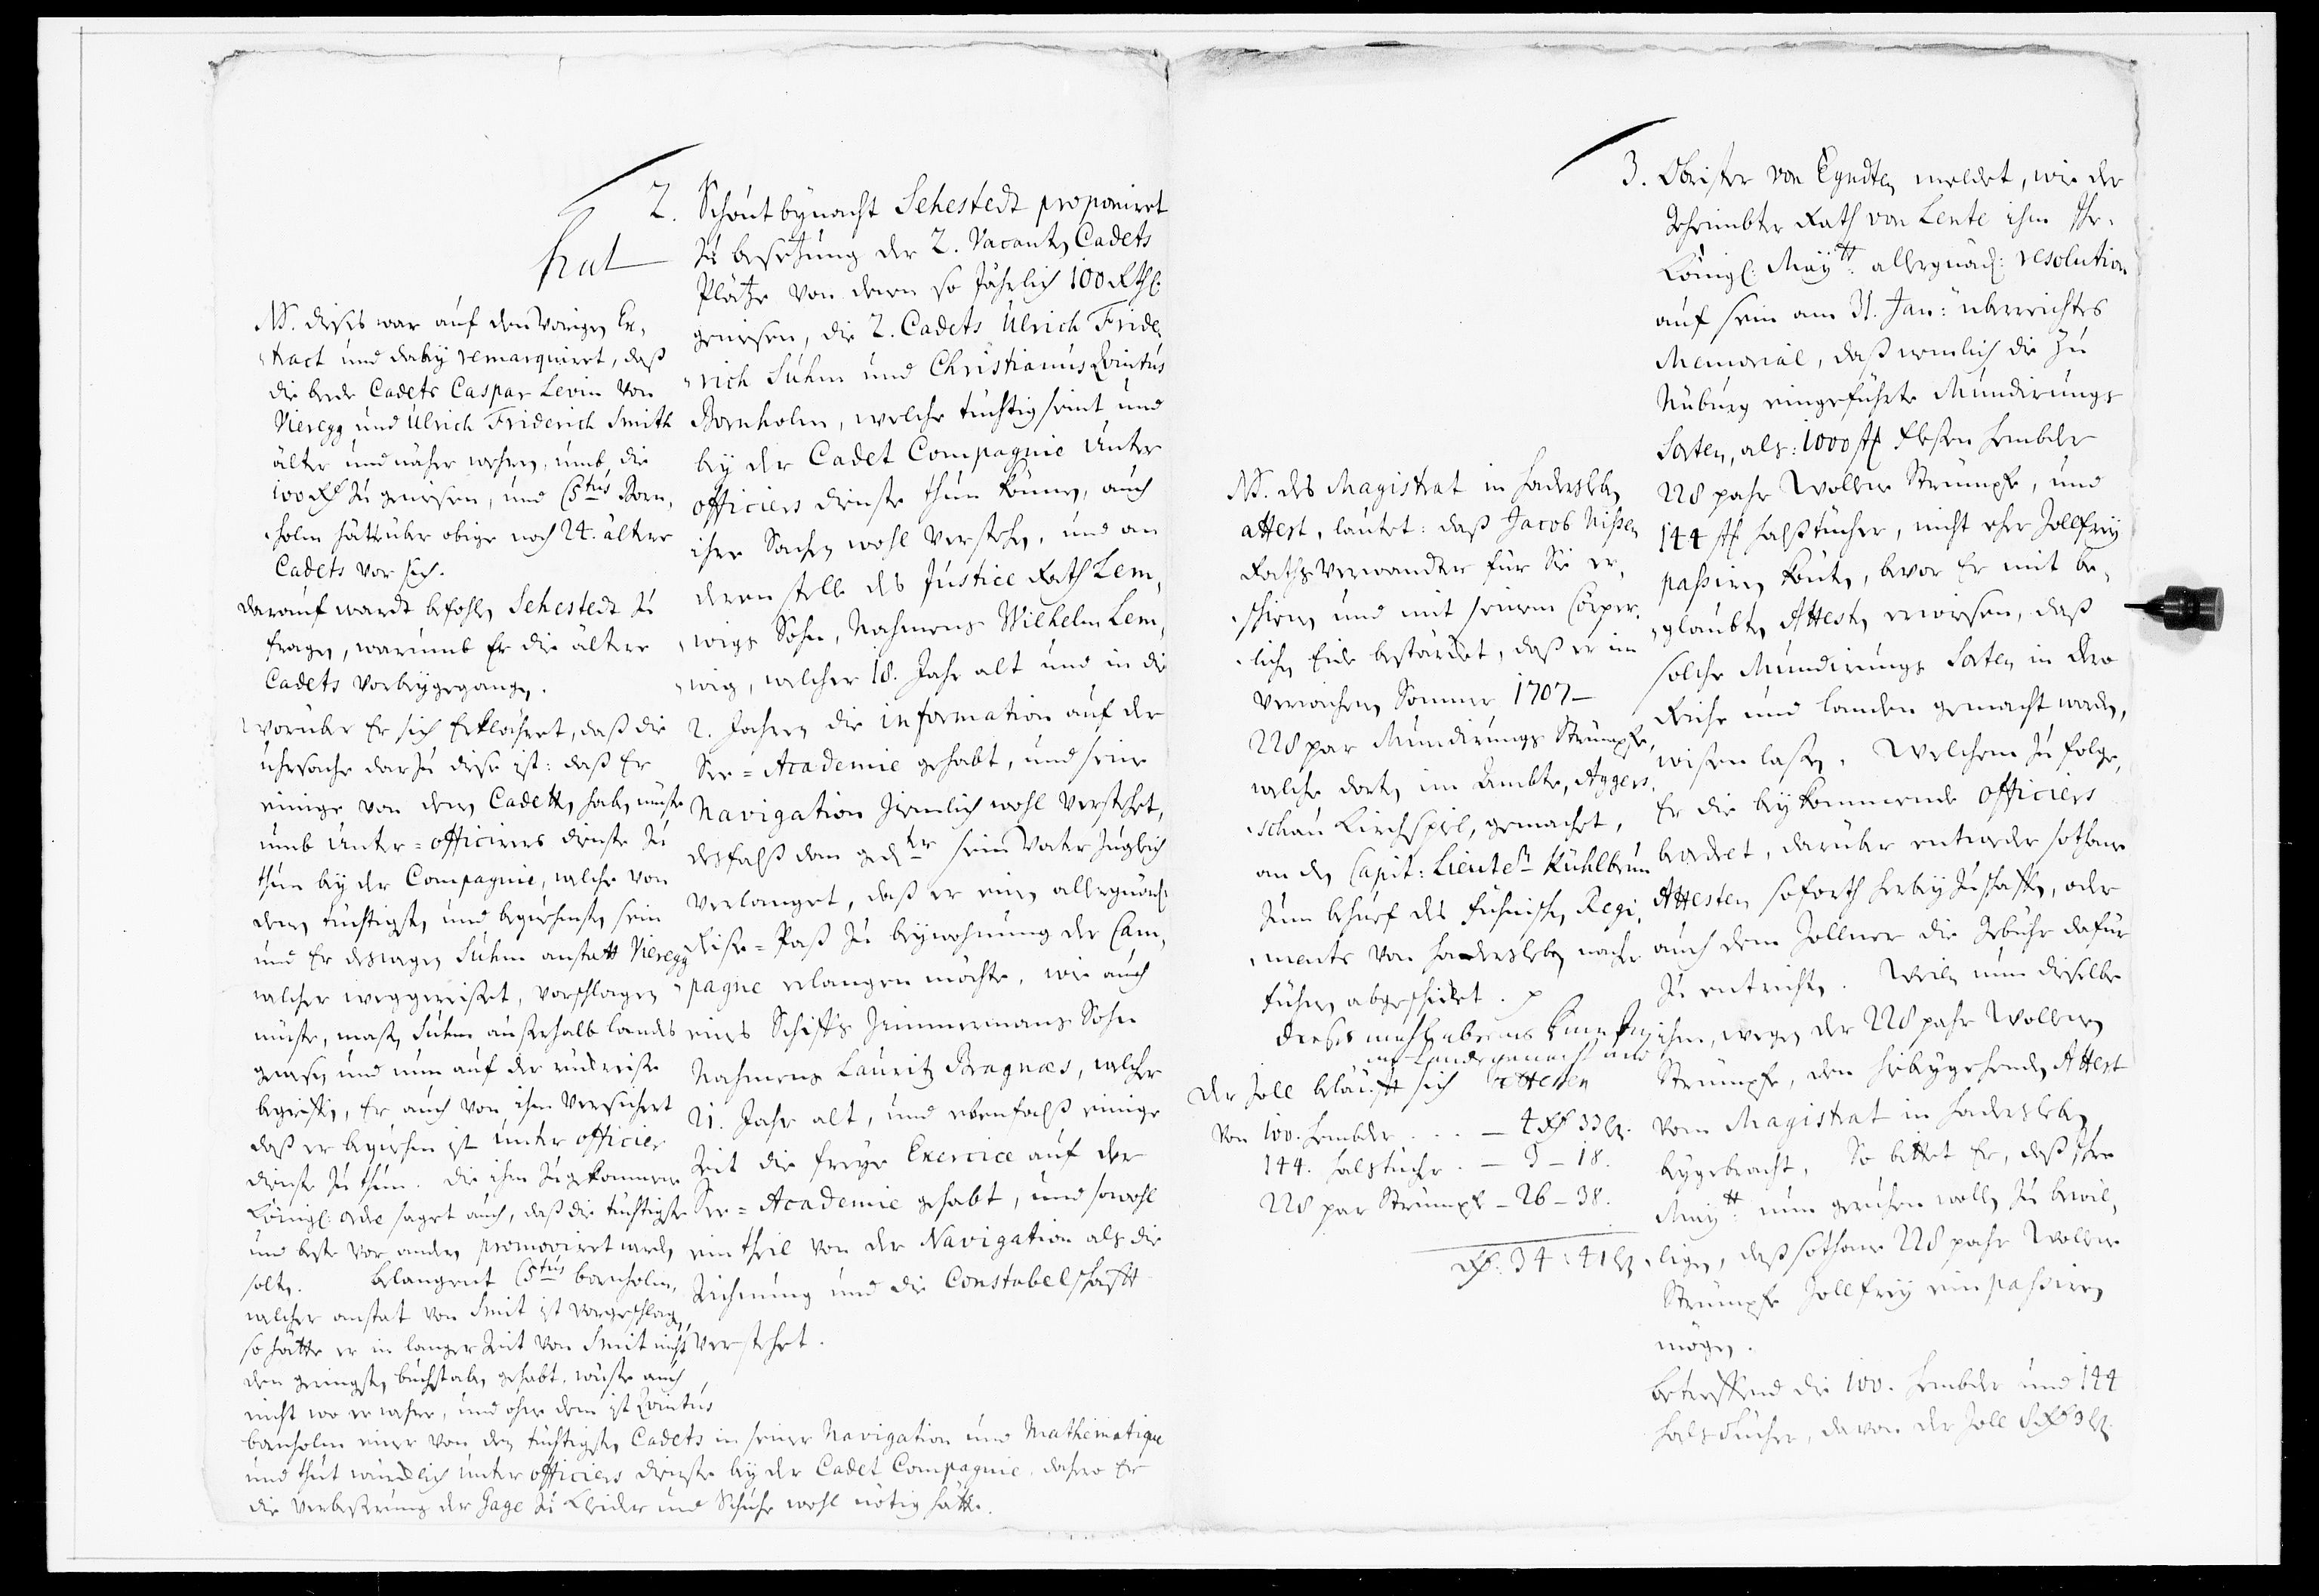 2. Schoutbynacht Sehestedt proponiret
zu besetzung der 2. Vacanten Cadets
Plätze von denen so Jährlich 100 Rthl:
geniesen, die 2. Cadets Ulrich Fride-
rich Suhm und Christianus Quintus
Bornholm, welche tüchtig seint und
bey der Cadet Compagnie Unter
officiers dienste thun können, auch
ihre Sachen wohl verstehen, und an
deren stelle des Justice Rath Lem-
wigs Sohn, Nahmens Wilhelm Lem-
wig, welcher 18. Jahr alt und in die
2. Jahren die information auf der
See-Academie gehabt, und seine
Navigation ziemlich wohl verstehet,
desfalß dan sein Vater zugleich
verlanget, daß er einen allergnäd:
Reise-Paß zu beywohnung der Cam-
pagne erlangen möchte, wie auch
eines Schiffs Zimmermans Sohn
Nahmens Lauritz Bragnæs, welcher
21. Jahr alt, und ebenfalß einige
Zeit die freye Exercice auf der
See-Academie gehabt, und sowohl
ein theil von der Navigation als die
Zeichnung und die Constabelschafft
verstehet.
hat
NB. dieses war auf den vorigen Ex-
tract und dabey remarquiret, daß
die beede Cadets Caspar Levin von
Vieregg und Ulrich Friderich Smith
älter und näher wehren, umb die
100 Rthl zu geniesen, und C5tus Born-
holm hätte über obige noch 24. ältere
Cadets vor sich.
darauf wardt befohlen Sehestedt zu
fragen, warumb Er die ältere
Cadets vorbeygegangen.
Worüber Er sich Erklähret, daß die
uhrsache darzu diese ist: daß Er
einige von den Cadetten haben müste
umb Unter-officirers dienste zu
thun bey der Compagnie, welche von
den tüchtigsten und bequehmsten sein
und Er deswegen Suhm anstatt Vieregg
welcher weggereiset, vorschlagen
müste, maßen Suhm außerhalb landes
gewesen und nun auf der rückreise
begriffen, Er auch von ihm versichert
daß er bequehm ist unter officier
dienste zu thun. die ihm zugekommene
Königl: ordre saget auch, daß die tüchtigste
und beste vor andere promoviret werden
solten. Belangent C5tus bornholm,
welcher anstat von Smit ist vorgeschlagen,
so hätte er in langer Zeit von Smit nicht
den geringsten buchstaben gehabt, wüste auch
nicht wo er wehre, und ohne dem ist Quintus
bornholm einer von den tüchtigsten Cadets in seiner Navigation und Mathematique
und thut würcklich unter officiers dienste bey der Cadet Compagnie, dahero Er
die verbeßerung der Gage zu Kleider und Schuhe wohl nötig hätte.
3. Obrister von Eyndten meldet, wie der
Geheimbter Rath von Lente ihm Ihr.
Königl: Maytt: allergnäd: resolution
auf sein am 31. Jan: überreichtes
Memorial, daß nemlich die zu
Nüburg eingeführte Mundirungs
Sorten, als: 1000 st Hembder
228 pahr Wollene Strümpfe, und
144 st halßtücher, nicht eher Zollfrey
paßiren könten, bevor Er mit be-
glaubten Attesten erwiesen, daß
solche Mundirungs Sorten in Dero
Reiche und landen gemacht worden,
wißen laßen. Welchem zu folge,
Er die beykommende officiers
beordret, darüber entweder sothane
Attesten soforth herbey zu schaffen, oder
auch dem Zollner die Gebühr dafür
zu entrichten. Weilen nun dieselbe
ihm, wegen der 228 pahr Wollene
Strümpfe, den hiebeygehenden Attest
vom Magistrat in Hadersleben
beygebracht, So bittet Er, daß Ihre
Maytt: nun geruhen wollen zu bewil-
ligen, daß sothane 228 pahr Wollene
Strümpfe Zollfrey ein paßiren
mögen.
Betreffend die 100. Hembder und 144
halstücher, davon der Zoll 8 Rthl 3 ß.
NB. des Magistrat in Hadersleben
attest, lautet: daß Jacob Nißen
Rahts Verwandter für Sie er-
schienen und mit seinem Cörper-
lichen Eide bestärcket, daß er im
verwichenen Sommer 1707
228 par Mundirungs Strümpfe,
welche dorten im Ambte, Aggers-
schau Kirchspiel, gemachet,
an den Capit: Lieutent Kühlbrun
zum behuef des fühnischen Regi-
ments von Hadersleben nacher
Fühnen abgeschicket.
der Zoll beläufft sich
Von 100. Hembder . . . — 4 Rthl 33 ß.
144. halstücher . — 3 — 18.
228 par Strümpfe — 26 — 38.
Rthl: 34 : 41 ß.